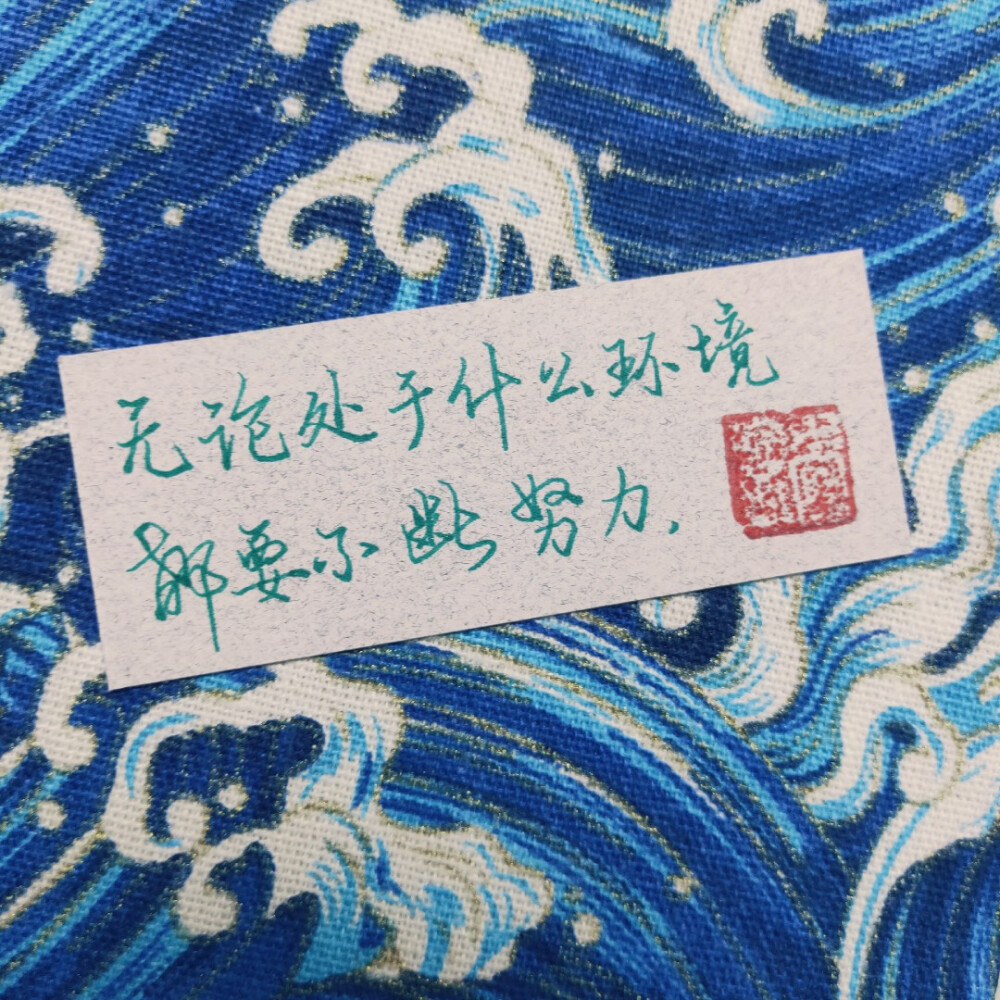 无论处于什么环境
都要不断努力.